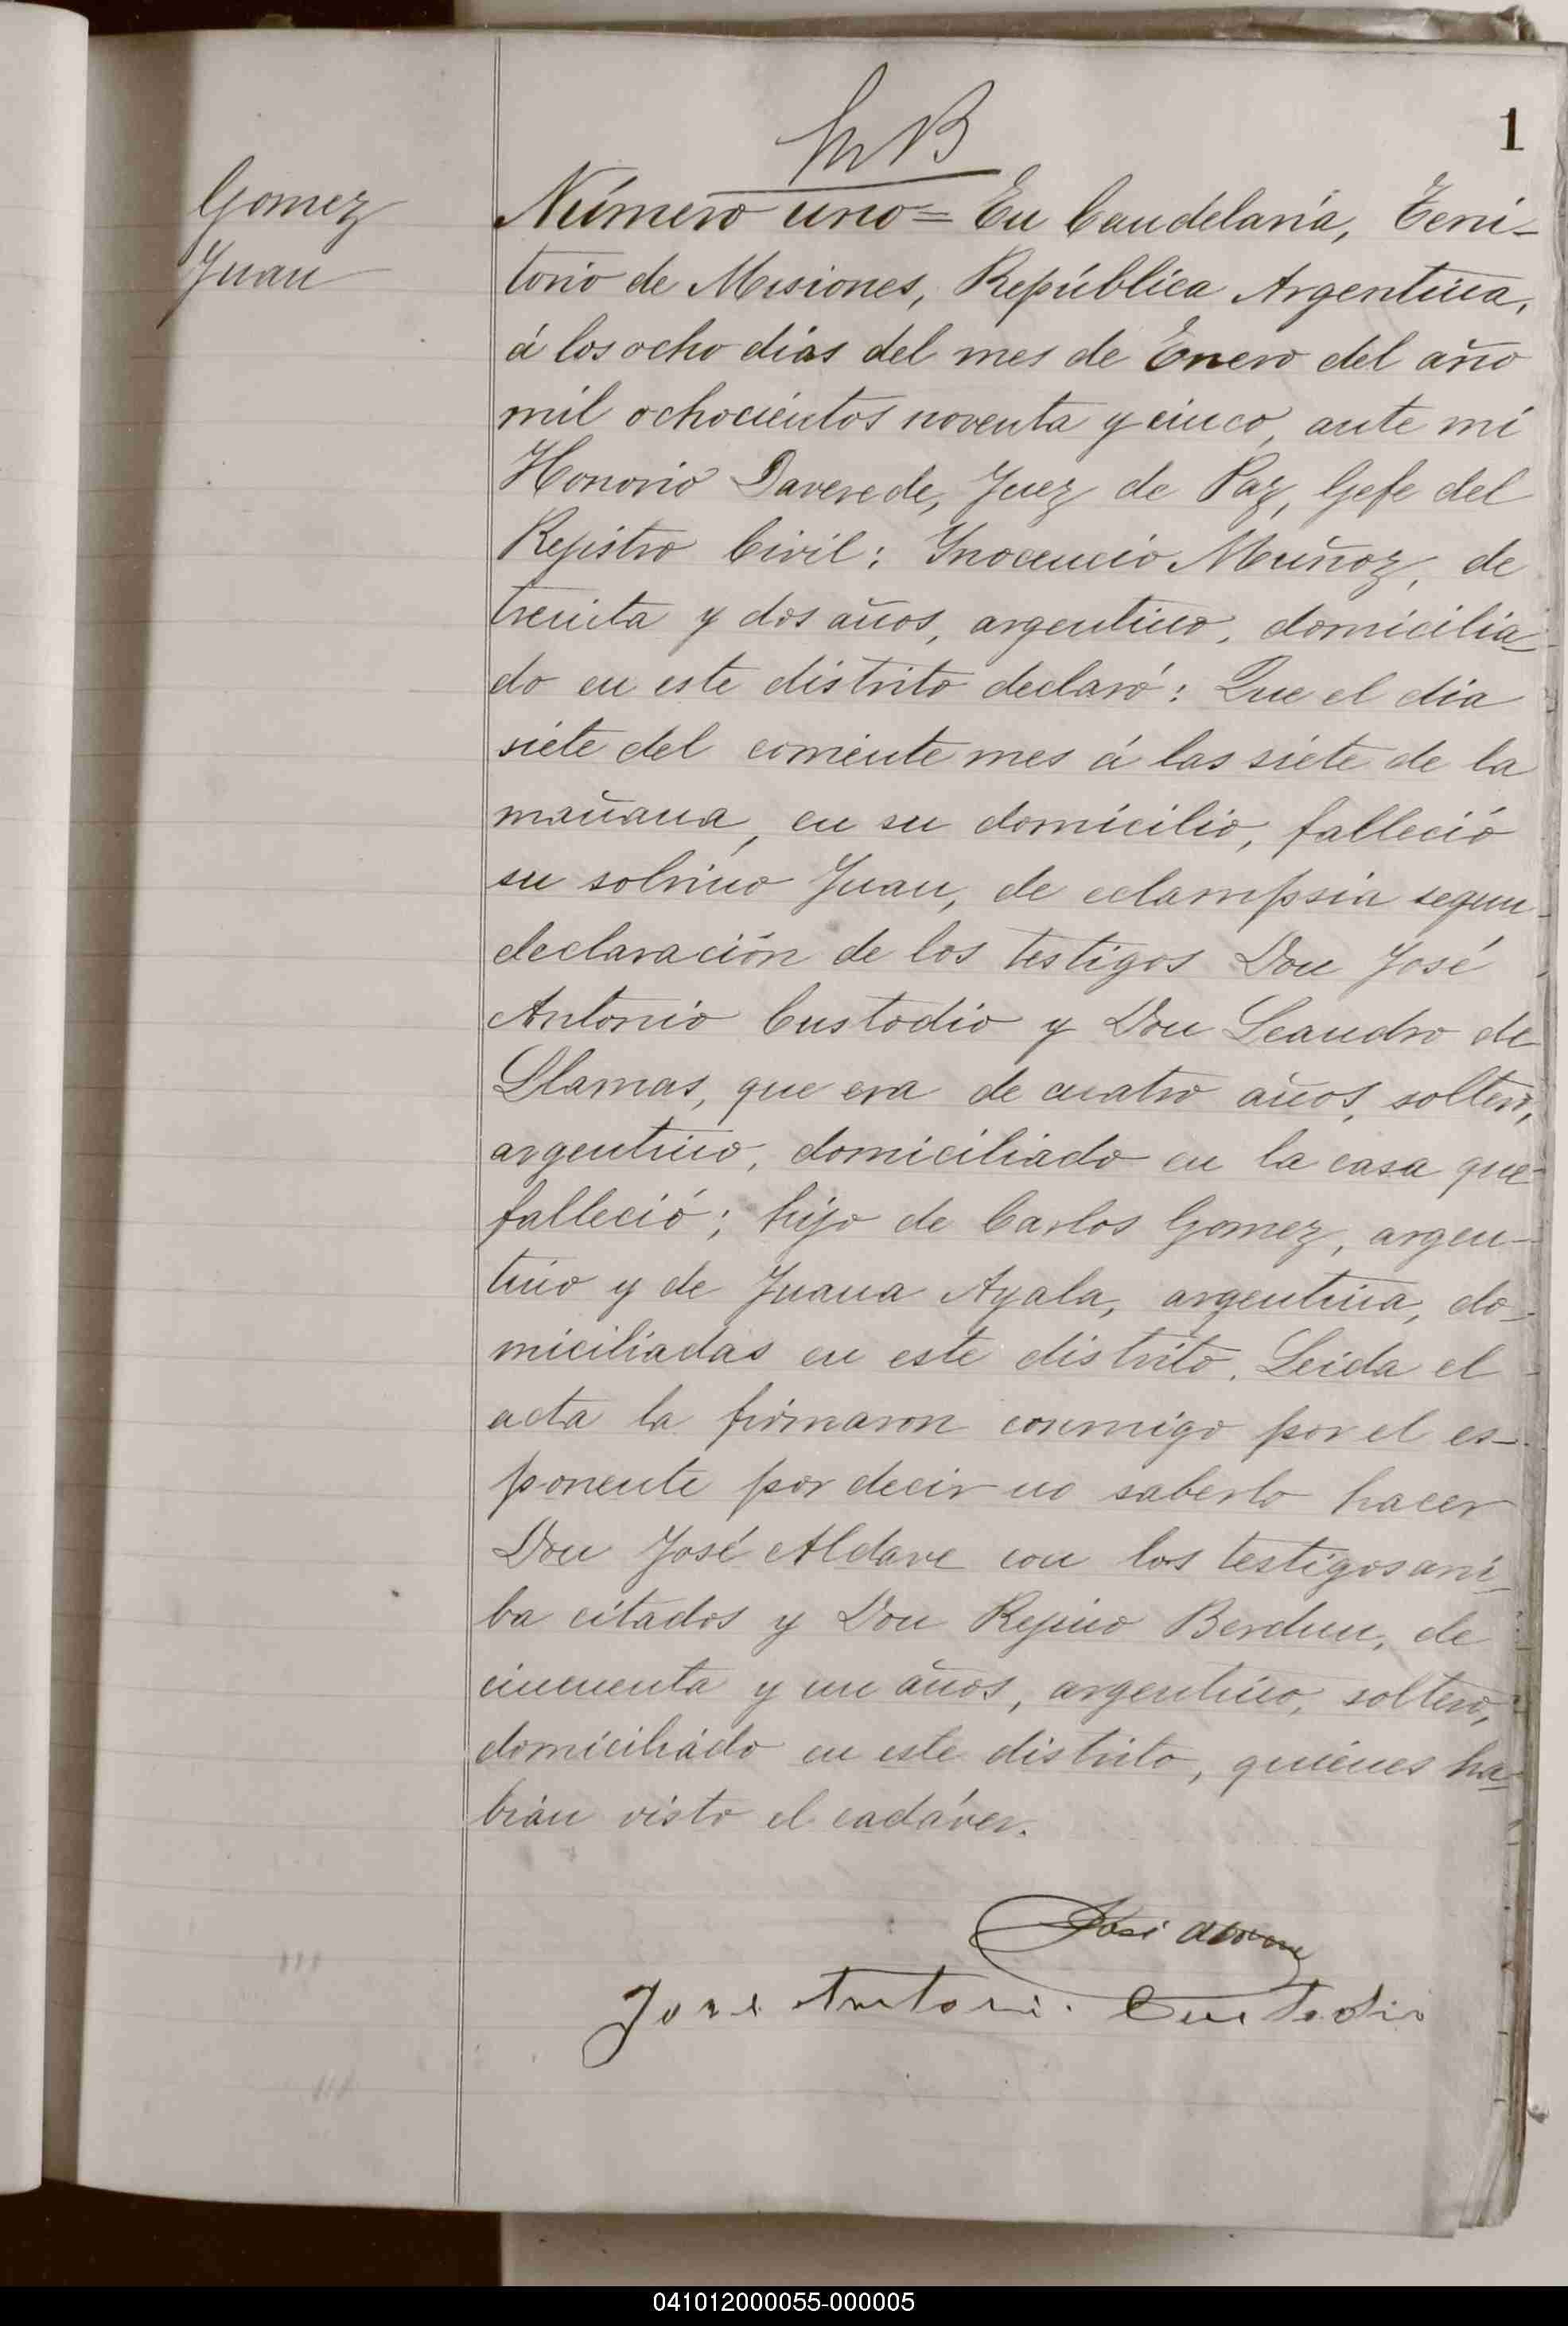 1
Gomez
Juan
Número uno = En Candelaria, Terri-
torio de Misiones, República Argentina,
á los ocho dias del mes de Enero del año
mil ochocientos noventa y cinco, ante mi
Honorio Daverede, Juez de Paz, Gefe del
Rejistro Civil: Inocencio Muñoz, de
treinta y dos años, argentino, domicilia-
do en este distrito declaró: Que el dia
siete del corriente mes á las siete de la
mañana, en su domicilio, falleció
su sobrino Juan, de eclampsia segun
declaración de los testigos Don José
Antonio Custodio y Don Leandro de
Llamas, que era de cuatro años, soltero,
argentino, domiciliado en la casa que
falleció; hijo de Carlos Gomez, argen-
tino y de Juana Ayala, argentina, do-
miciliadas en este distrito. Leida el
acta la firmaron conmigo por el es-
ponente por decir no saberlo hacer
Don José Aldave con los testigos arri-
ba citados y Don Rejino Berdun, de
cincuenta y un años, argentino, soltero,
domiciliado en este distrito, quienes ha-
bian visto el cadáver.
Jose Antoni. Custodio
041012000055-000005